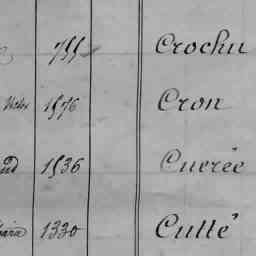 755 Crochu
1576 Cron
1536 Cuerée
1330 Cutté